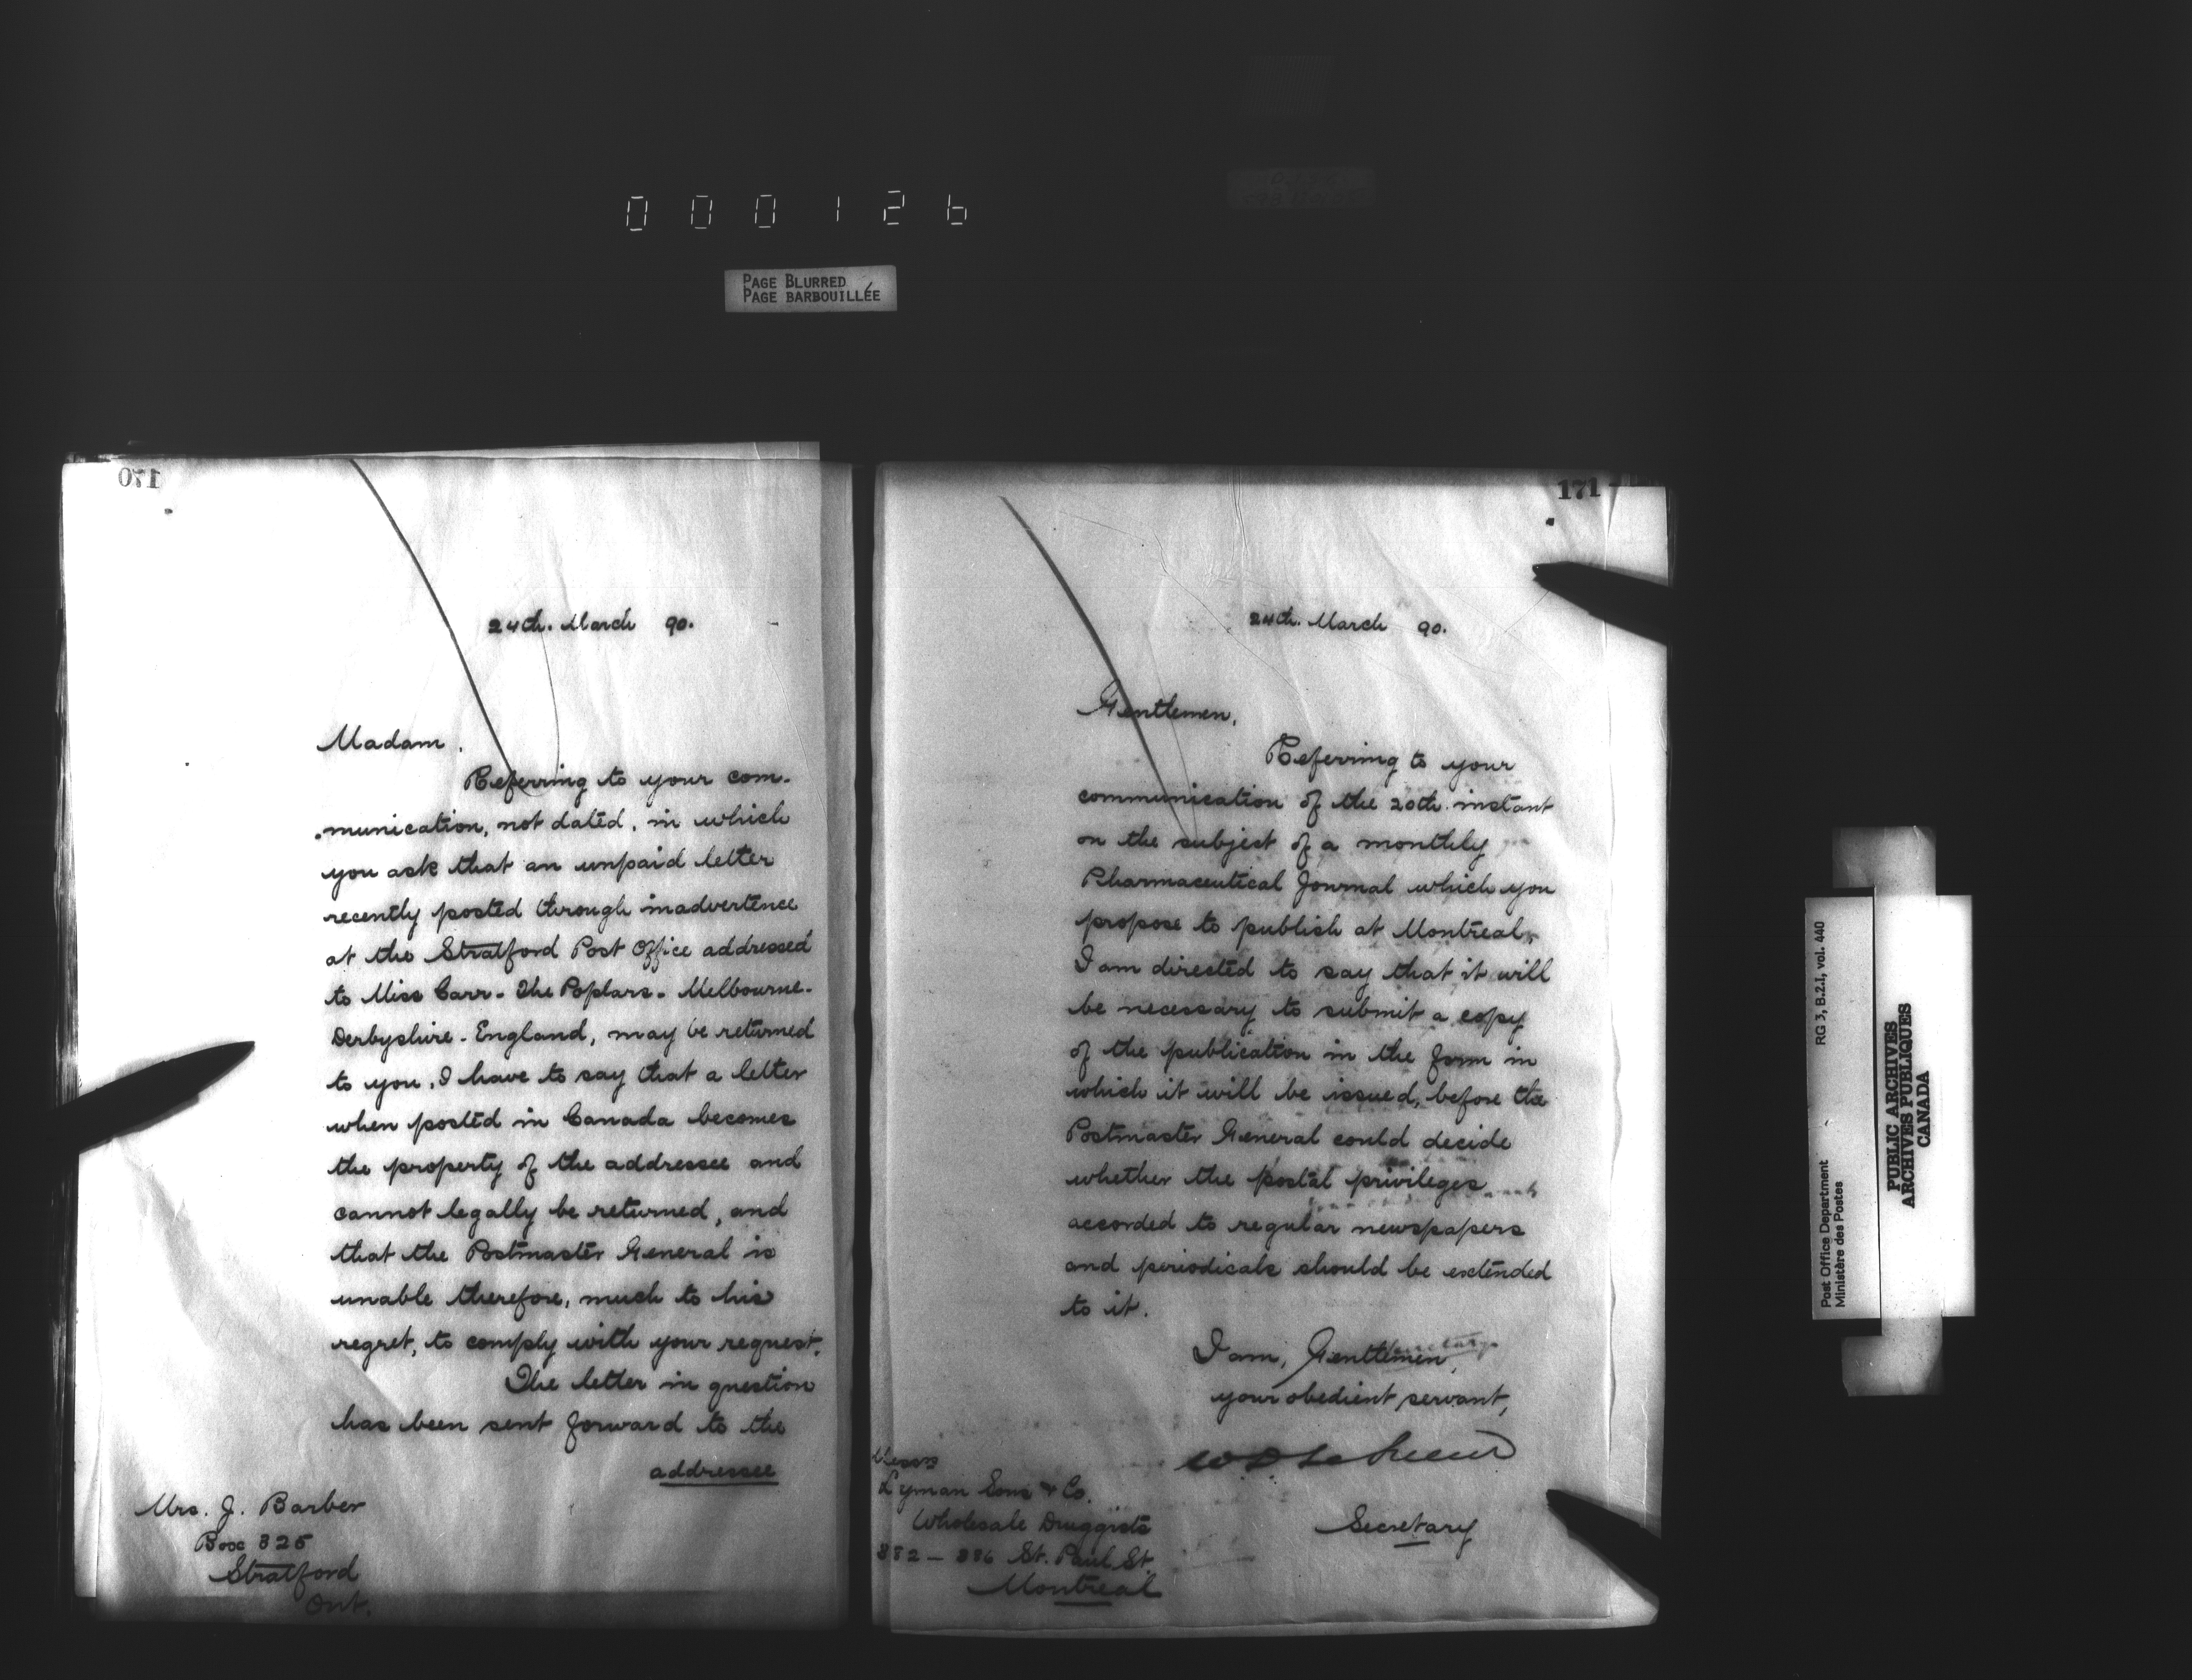 000126
PAGE BLURRED
PAGE BARBOUILLÉE
170
24th. March 90.
Madam,
Referring to your com-
munication, not dated, in which
you ask that an unpaid letter
recently posted through inadvertence
at the Stratford Post Office addressed
to Miss Carr. The Poplars. Melbourne.
Derbyshire. England, may be returned
to you, I have to say that a letter
when posted in Canada becomes
the property of the addressee and
cannot legally be returned, and
that the Postmaster General is
unable therefore, much to his
regret, to comply with your request.
The letter in question
has been sent forward to the
addressee
Mrs. J. Barber
Box 325
Stratford
Ont.
171
24th. March 90.
Gentlemen,
Referring to your
communication of the 20th. instant
on the subject of a monthly
Pharmaceutical Journal which you
propose to publish at Montreal,
I am directed to say that it will
be necessary to submit a copy
of the publication in the form in
which it will be issued, before the
Postmaster General could decide
whether the postal privileges
accorded to regular newspapers
and periodicals should be extended
to it.
I am, Gentlemen,
your obedient servant,
Secretary
Messrs
Lyman Sons & Co.
Wholesale Druggists
382 – 386 St. Paul St.
Montreal
RG 3, B.2.1, vol. 440
Post Office Department
Ministère des Postes
PUBLIC ARCHIVES
ARCHIVES PUBLIQUES
CANADA